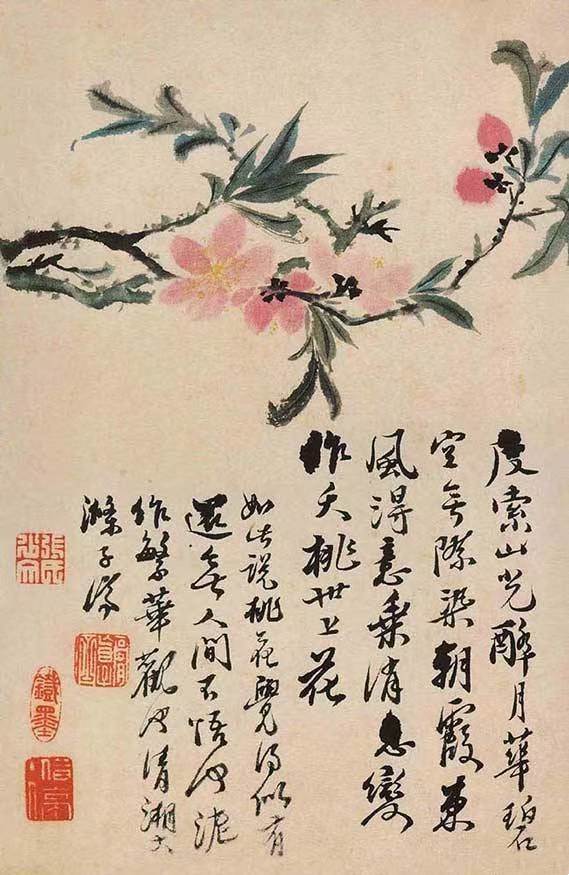 度索山光醉月華碧
空無際染朝霞東
風得意乘消息變
作夭桃世上花
如此説桃花覺得似有
還無人間不悟何泥
作繁華觀也清湘大
滌子濟
鐵墨